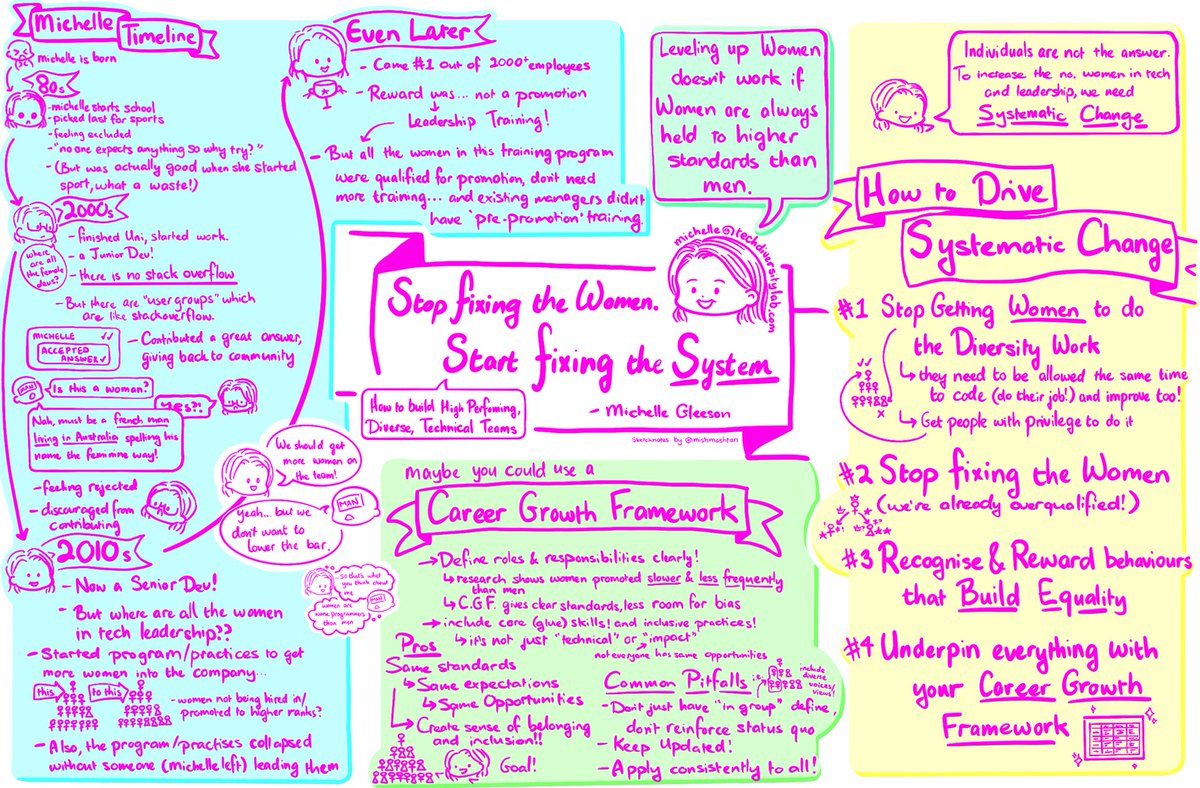 Michelle
Timeline
Michelle is born
80s
- michelle starts school
- picked last for sports
- feeling excluded
- "no one expects anything so why try?"
- (But was actually good when she started
sport, what a waste!)
2000s
where
are all
the female
devs?
- finished Uni, started work.
- a Junior Dev!
- there is no stack overflow
- But there are "user groups" which
are like stackoverflow.
MICHELLE
ACCEPTED
ANSWER
- Contributed a great answer,
giving back to community
MAN
Is this a woman?
Yes?!
Nah, must be a french man
living in Australia spelling his
name the feminine way!
- feeling rejected
- discouraged from
contributing
2010s
- Now a Senior Dev!
- But where are all the women
in tech leadership??
- Started program/practices to get
more women into the company...
this
to this
- women not being hired in/
promoted to higher ranks?
- Also, the program/practises collapsed
without someone (michelle left) leading them
We should get
more women on
the team!
MAN
Yeah... but we
don't want to
lower the bar.
..so that's what
you think about
me
MAN
women are
worse programmers
than men
Even Later
- Came #1 out of 2000+ employees
- Reward was... not a promotion
Leadership Training!
- But all the women in this training program
were qualified for promotion, don't need
more training... and existing managers didn't
have 'pre-promotion' training.
Leveling up Women
doesn't work if
Women are always
held to higher
standards than
men.
michelle@techdiversitylab.com
Stop fixing the Women.
Start fixing the System
- Michelle Gleeson
How to build High Perfoming,
Diverse, Technical Teams
Sketchnotes by @mishmashtan
maybe you could use a
Career Growth Framework
Define roles & responsibilities clearly!
research shows women promoted slower & less frequently
than men
C.G.F. gives clear standards, less room for bias
include core (glue) skills! and inclusive practices!
it's not just "technical" or "impact"
not everyone has same opportunities
Pros
Same standards
Same expectations
Same Opportunities
Create sense of belonging
and inclusion!!
Goal!
Common Pitfalls
include
diverse
voices/
views!
- Don't just have "in group" define,
don't reinforce status quo
- Keep Updated!
- Apply consistently to all!
Individuals are not the answer.
To increase the no. women in tech
and leadership, we need
Systematic Change
How to Drive
Systematic Change
#1 Stop Getting Women to do
the Diversity Work
they need to be allowed the same time
to code (do their job!) and improve too!
Get people with privilege to do it
#2 Stop fixing the Women
(we're already overqualified!)
#3 Recognise & Reward behaviours
that Build Equality
#4 Underpin everything with
your Career Growth
Framework